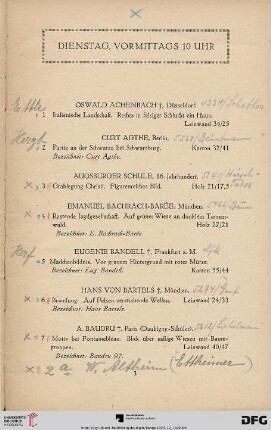 DIENSTAG, VORMITTAGS 10 UHR
OSWALD ACHENBACH †, Düsseldorf.
1 Italienische Landschaft. Rechts in felsiger Schlucht ein Haus.
Leinwand 36/25
CURT AGTHE, Berlin.
2 Partie an der Schwarza bei Schwarzburg.
Karton 32/41
Bezeichnet: Curt Agthe.
AUGSBURGER SCHULE, 16. Jahrhundert.
3 Grablegung Christi. Figurenreiches Bild.
Holz 21/17,5
EMANUEL BACHRACH-BARÉE, München.
4 Rastende Jagdgesellschaft. Auf grüner Wiese an dunklem Tannenwald.
Holz 27/21
Bezeichnet: E. Bachrach-Barée.
EUGENIE BANDELL †, Frankfurt a. M.
5 Mädchenbildnis. Vor grauem Hintergrund mit roter Mütze.
Bezeichnet: Eug. Bandell.
Karton 55/44
HANS VON BARTELS †, München.
6 Brandung. Auf Felsen zerstiebende Wellen.
Leinwand 24/33
Bezeichnet: Hans Bartels.
A. BAUDRU †, Paris (Daubigny-Schüler).
7 Motiv bei Fontainebleau. Blick über saftige Wiesen mit Baumgruppen.
Leinwand 40/47
Bezeichnet: Baudru 97.
2a W. Altheim (Ettheimer)
3